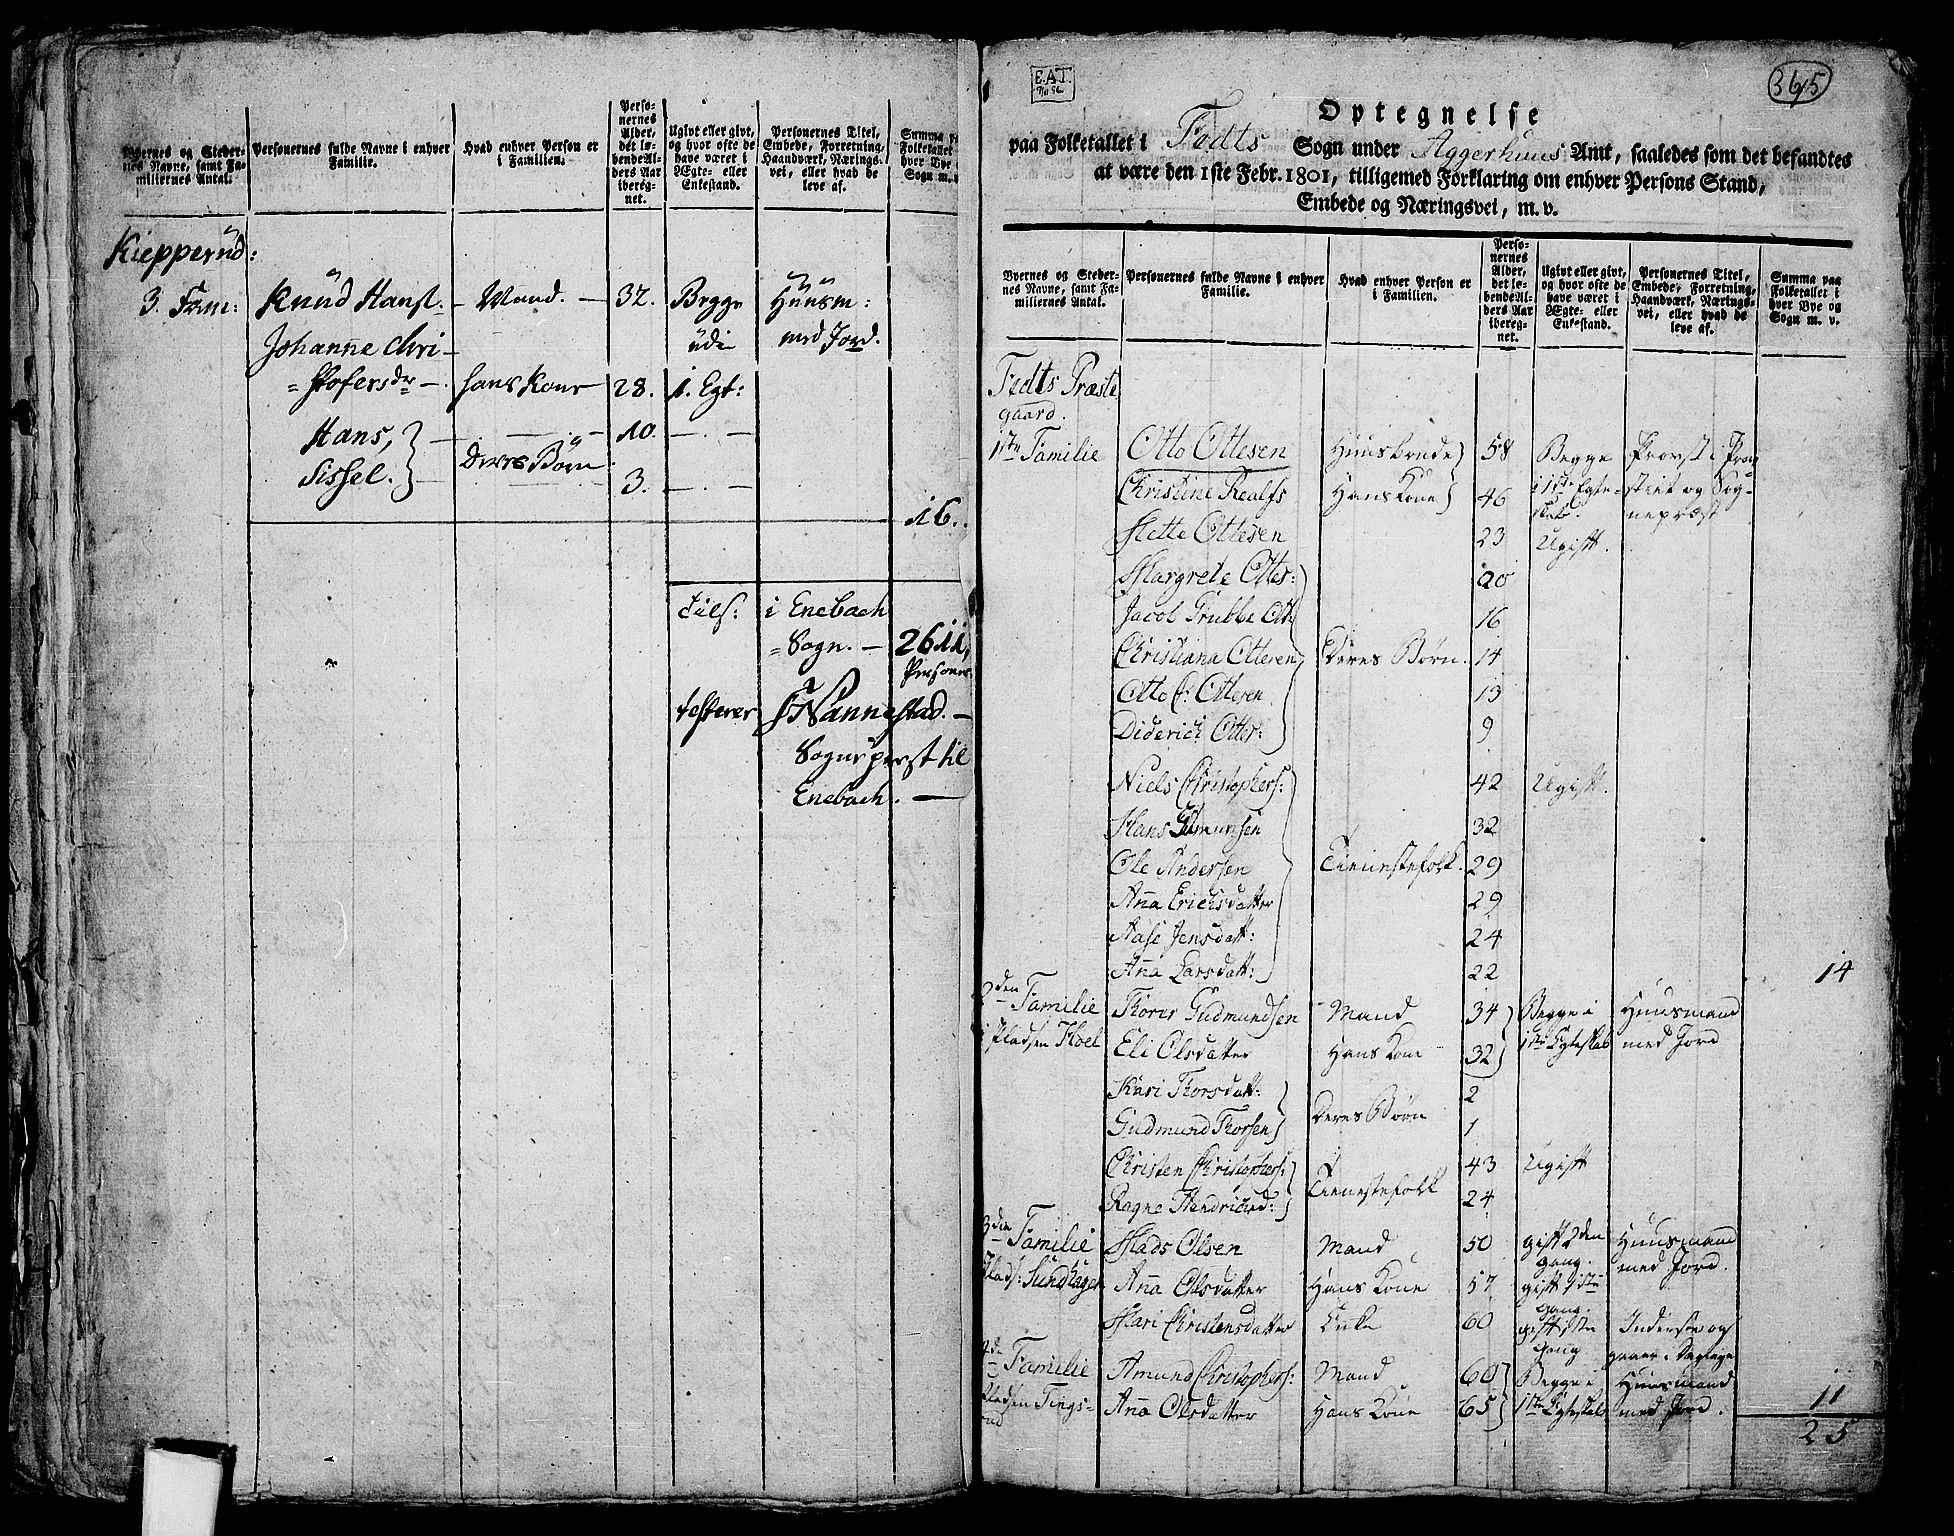 Byernes og Steder-
nes Navne, samt Fa-
miliernes Antal.
Personernes fulde Navne i enhver
Familie.
Hvad enhver Person er
i Familien.
Perso-
nernes
Alder,
det le-
bende Al-
ders Aar
ibereg-
net.
Ugivt eller givt,
og hvor ofte de
have været i
Ægte- eller
Enkestand.
Personernes Titel,
Embede, Forretning,
Haandværk, Nærings-
vei, eller hvad de
leve af.
Summa
Folketallet
hver Bye
Sogn m.
Kiepperud:
3. Fam: Knud Hansl. – Mand. – 32. Begge Huusm:
Johanne Chri- udi med Jord.
= stofersdr –. hans Kone 28. 1. Egt:
Hans, } – – – 10. – –
Sissel. } – Deres Børn. 3. – –
16.
Tils: i Enebach
= Sogn. – 2611,
Personer
testerer Nannestad. –
Sognepræst til
Enebach. –
E.A.T.
No 56
365
Optegnelse
paa Folketallet i Fedts Sogn under Aggerhuus Amt, saaledes som det befandtes
at være den 1ste Febr. 1801, tilligemed Forklaring om enhver Persons Stand,
Embede og Næringsvei, m. v.
Byernes og Steder-
nes Navne, samt Fa-
miliernes Antal.
Personernes fulde Navne i enhver
Familie.
Hvad enhver Person er
i Familien.
Perso-
nernes
Alder,
det le-
bende Al-
ders Aar
ibereg-
net.
Ugivt eller givt,
og hvor ofte de
have været i
Ægte- eller
Enkestand.
Personernes Titel,
Embede, Forretning,
Haandværk, Nærings-
vei, eller hvad de
leve af.
Summa paa
Folketallet i
hver Bye og
Sogn m. v.
Fedts Præste
gaard.
1ste Familie Otto Ottesen Huusbonde } 58 Begge Provst i Prov
Christine Realfs Hans Kone } 46 i 1ste Egte- stiet og Sog-
skab. nepræst
Mette Ottesen 23 Ugift.
Margrete Ottes: 20
Jacob Grubbe Ott: 16
Christiana Ottesen Deres Børn. 14
Otto C: Ottesen 13
Diderich Ottes: 9
Niels Christophers: 42 Ugift.
Hans 32
Ole Andersen Tienestefolk. 29
Anna Erichsdatter 29
Aase Jensdatt: 24
Anna Larsdatt: 22 14
2den Familie Thorer Gudmundsen Mand 34 } Begge i Huusmand
i Pladsen Hoel Eli Olsdatter Hans Kone 32 } 1ste Egteskab med Jord
Kari Thorsdatt: } 2
Gudmund Thorsen } Deres Børn 1
Christen Christophers: } 43 Ugift
Ragne Hendrichsd: } Tienestefolk 24
3die Familie Mads Olsen Mand 50 gift 2den Huusmand
gang. med Jord.
Plads: Sundhagen Anna Olsdatter Hans Kone 57 gift 1ste
gang.
Mari Christensdatter Enke 60 gift 1ste Inderste og
gang
4de Familie Amund Christophers: Mand 60 } Begge i Huusmand
Pladsen Tings- Anna Olsdatter Hans Kone 65 } 1ste Egteskab med Jord. 11
25